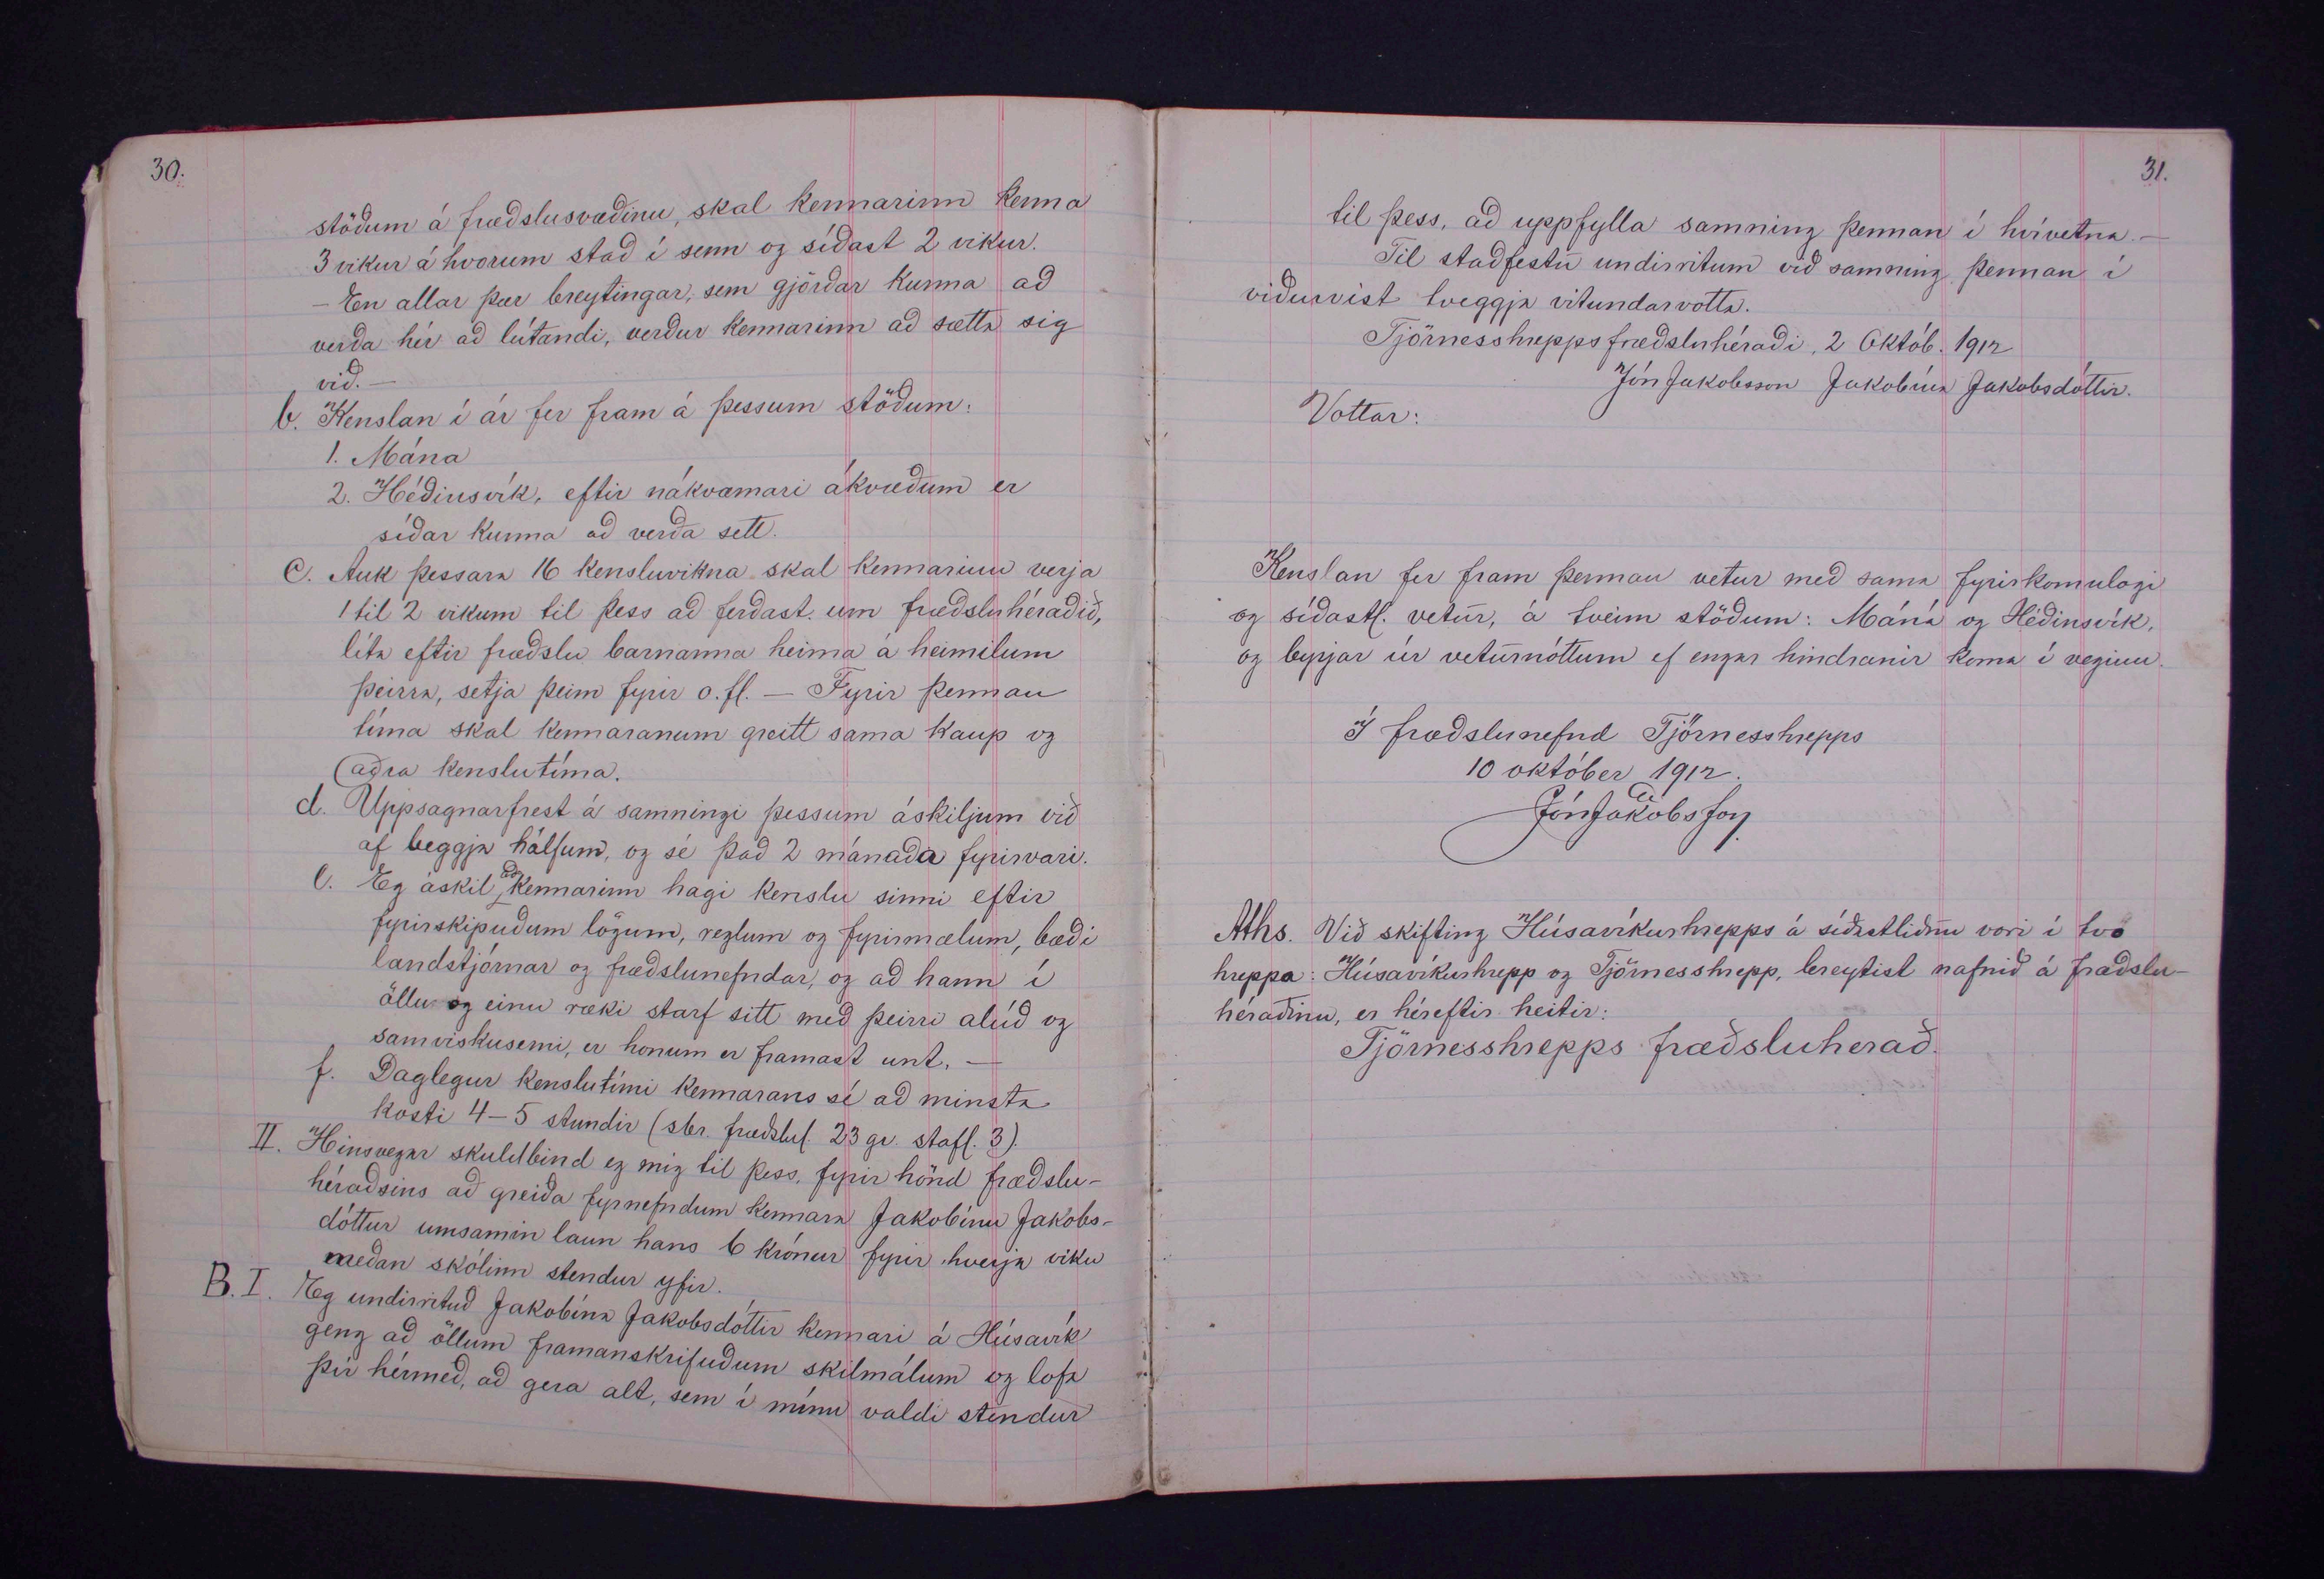 30.
stöðum á fræðslusvæðinu, skal kennarinn kenna
3 vikur á hvorum stað í senn og síðast 2 vikur.
– En allar þær breytingar, sem gjörðar kunna að
verða hér að lútandi, verður kennarinn að sætta sig
við. –
b. Kenslan í ár fer fram á þessum stöðum:
1. Mána
2. Héðinsvík, eftir nákvæmari ákvæðum er
síðar kunna að verða sett.
c. Auk þessara 16 kensluvikna skal kennarinn verja
1 til 2 vikum til þess að ferðast um fræðsluhéraðið,
líta eftir fræðslu barnanna heima á heimilum
þeirra, setja þeim fyrir o.fl. – Fyrir þennan
tíma skal kennaranum greitt sama kaup og
(aðra kenslutíma.
d. Uppsagnarfrest á samningi þessum áskiljum við
af beggja hálfum, og sé það 2 mánaða fyrirvari.
e. Eg áskil, að kennarinn hagi kenslu sinni eftir
fyrirskipuðum lögum, reglum og fyrirmælum, bæði
landstjórnar og fræðslunefndar, og að hann í
öllu og einu ræki starf sitt með þeirri alúð og
samviskusemi, er honum er framast unt. –
f. Daglegur kenslutími kennarans sé að minsta
kosti 4–5 stundir (sbr. fræðslul. 23 gr. stafl. 3).
II. Hinsvegar skuldbind eg mig til þess, fyrir hönd fræðslu-
héraðsins að greiða fyrnefndum kennara Jakobínu Jakobs-
dóttur umsamin laun hans 6 krónur fyrir hverja viku
meðan skólinn stendur yfir.
B. I. Eg undirrituð Jakobína Jakobsdóttir kennari á Húsavík
geng að öllum framanskrifuðum skilmálum og lofa
því hérmeð, að gera alt, sem í mínu valdi stendur
31.
til þess, að uppfylla samning þennan í hvívetna. –
Til staðfestu undirritum við samning þennan í
viðurvist tveggja vitundarvotta.
Tjörnesshreppsfræðsluhéraði, 2 Októb. 1912
Jón Jakobsson Jakobína Jakobsdóttir.
Vottar:
Kenslan fer fram þennan vetur með sama fyrirkomulagi
og síðastl. vetur, á tveim stöðum: Máná og Héðinsvík,
og byrjar úr veturnóttum ef engar hindranir koma í veginn.
Í fræðslunefnd Tjörnesshrepps
10 október 1912.
Jón Jakobsson
Aths. Við skifting Húsavíkurhrepps á síðastliðnu vori í tvo
hreppa: Húsavíkurhrepp og Tjörnesshrepp, breytist nafnið á fræðslu-
héraðinu, er héreftir heitir:
Tjörnesshrepps fræðsluherað.